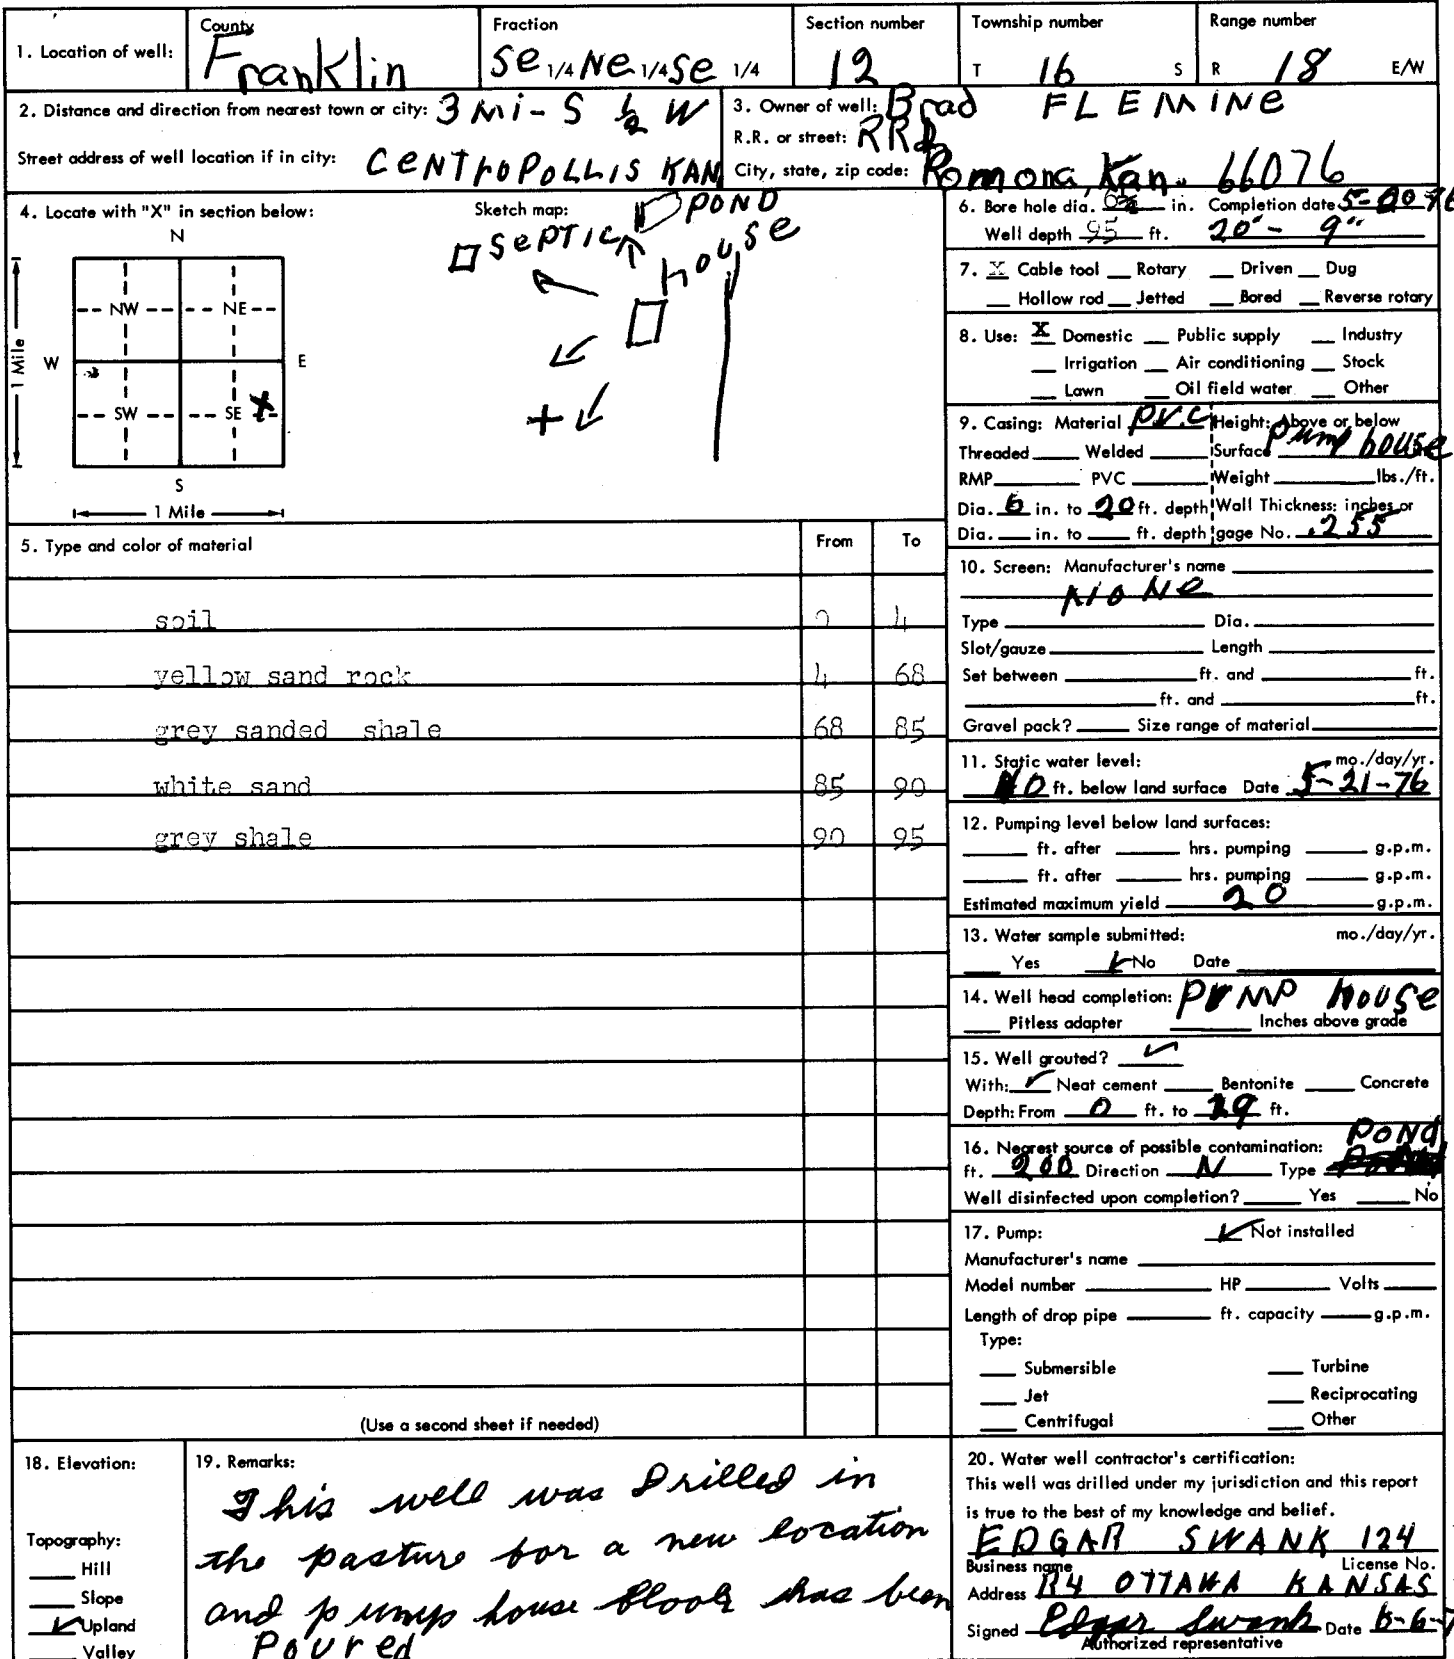 1. Location of well: County Franklin Fraction Se 1/4 Ne 1/4 Se 1/4 Section number 12 Township number T 16 S Range number R 18 E/W
2. Distance and direction from nearest town or city: 3 Mi - S ½ W
Street address of well location if in city: CENTROPOLLIS KAN
3. Owner of well: Brad FLEMINE
R.R. or street: RR
City, state, zip code: Pomona, Kan. 66076
4. Locate with "X" in section below:
N
NW NE
W E
SW SE X
S
1 Mile
1 Mile
Sketch map:
POND
SePTIC
house
+
6. Bore hole dia. in. Completion date 5-20-76
Well depth 95 ft. 20" - 9"
7. X Cable tool Rotary Driven Dug
Hollow rod Jetted Bored Reverse rotary
8. Use: X Domestic Public supply Industry
Irrigation Air conditioning Stock
Lawn Oil field water Other
9. Casing: Material P.V.C Height: Above or below
Threaded Welded Surface Pump house
RMP PVC Weight lbs./ft.
Dia. 6 in. to 20 ft. depth Wall Thickness: inches or
Dia. in. to ft. depth gage No. .255
5. Type and color of material From To
soil 0 4
yellow sand rock 4 68
grey sanded shale 68 85
white sand 85 90
grey shale 90 95
(Use a second sheet if needed)
10. Screen: Manufacturer's name
NONe
Type Dia.
Slot/gauze Length
Set between ft. and ft.
ft. and ft.
Gravel pack? Size range of material
11. Static water level: mo./day/yr.
ft. below land surface Date 5-21-76
12. Pumping level below land surfaces:
ft. after hrs. pumping g.p.m.
ft. after hrs. pumping g.p.m.
Estimated maximum yield 20 g.p.m.
13. Water sample submitted: mo./day/yr.
Yes ✓ No Date
14. Well head completion: PUMP house
Pitless adapter Inches above grade
15. Well grouted? ✓
With: ✓ Neat cement Bentonite Concrete
Depth: From 0 ft. to ft.
16. Nearest source of possible contamination: POND
ft. 200 Direction N Type
Well disinfected upon completion? Yes No
17. Pump: ✓ Not installed
Manufacturer's name
Model number HP Volts
Length of drop pipe ft. capacity g.p.m.
Type:
Submersible Turbine
Jet Reciprocating
Centrifugal Other
18. Elevation:
Topography:
Hill
Slope
✓ Upland
Valley
19. Remarks:
This well was Drilled in
the pasture for a new location
and pump house floor has been
Poured
20. Water well contractor's certification:
This well was drilled under my jurisdiction and this report
is true to the best of my knowledge and belief.
EDGAR SWANK 124
Business name License No.
Address R4 OTTAWA KANSAS
Signed Edgar Swank Date
Authorized representative